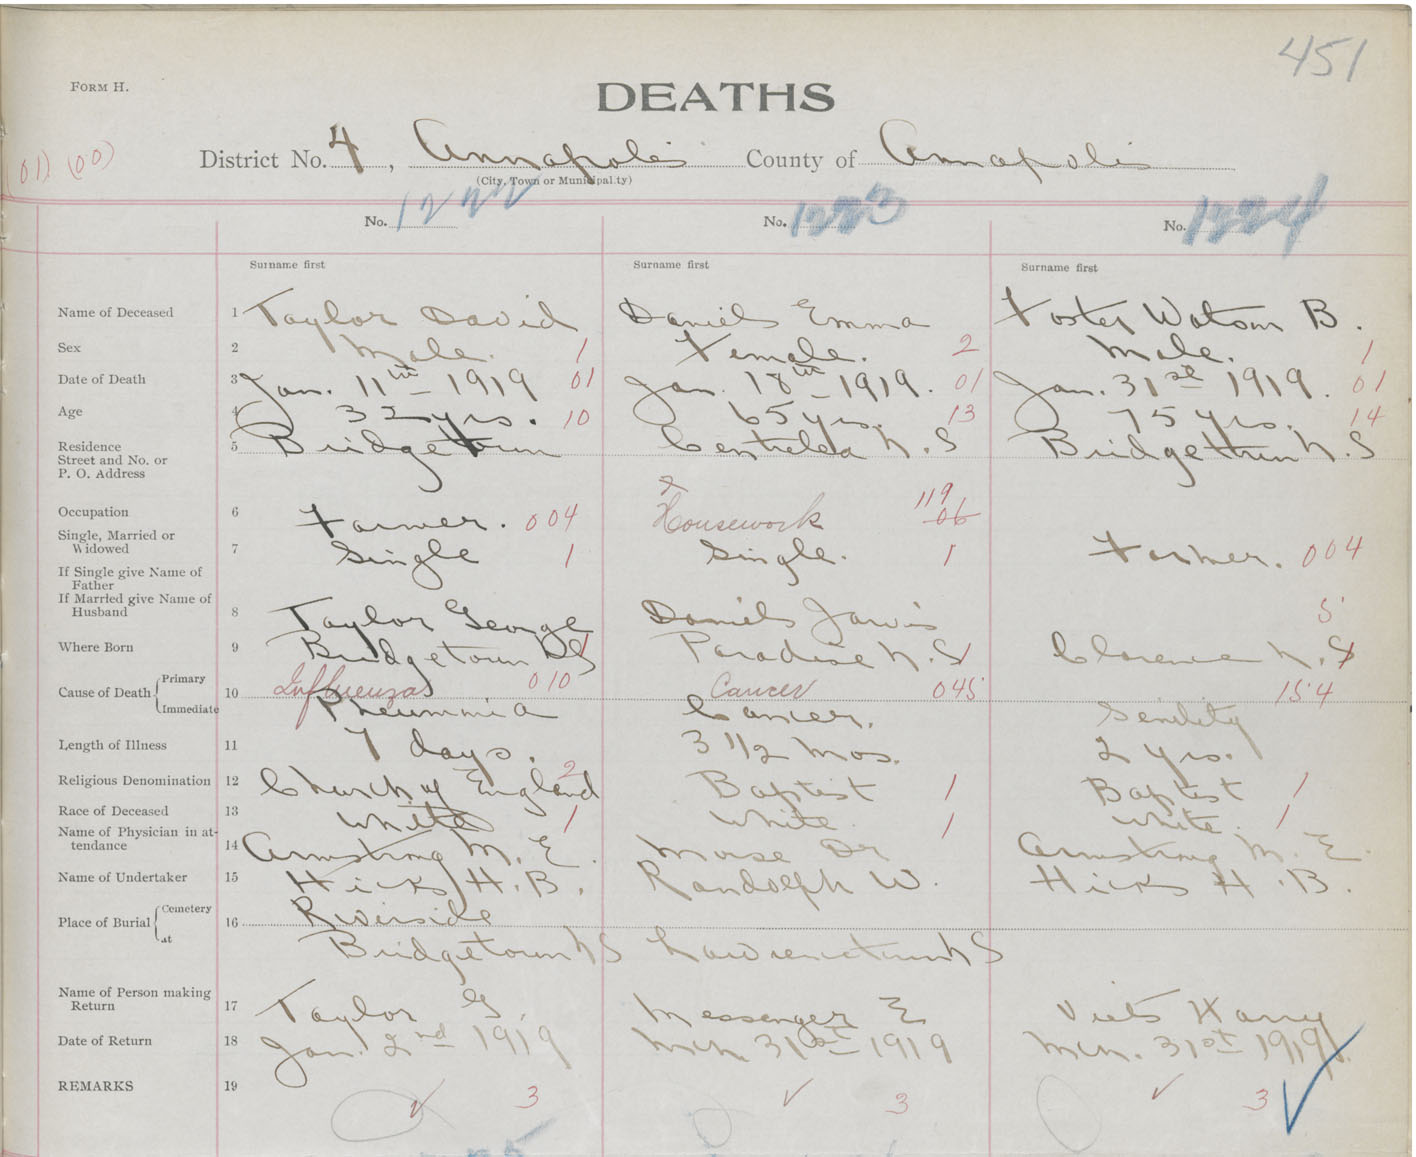 451
FORM H.
DEATHS
District No. 4, Annapolis County of Annapolis
(City, Town or Municipality)
(01) (00)
No. 1222 No. 1223 No. 1224
Surname first Surname first Surname first
Name of Deceased 1 Taylor David Daniels Emma Foster Watson B.
Sex 2 Male. 1 Female. 2 Male. 1
Date of Death 3 Jan. 11th 1919 01 Jan. 18th 1919. 01 Jan. 31st 1919. 01
Age 4 32 yrs. 10 65 yrs. 13 75 yrs. 14
Residence
Street and No. or
P. O. Address 5 Bridgetown Centrelea N.S Bridgetown N.S
Occupation 6 Farmer. 004 Housework 119 06
Single, Married or
Widowed 7 Single 1 Single. 1 Farmer. 004
If Single give Name of
Father
If Married give Name of
Husband 8 Taylor George Daniels Jarvis 5
Where Born 9 Bridgetown NS 1 Paradise N.S 1 Clarence N.S 1
Cause of Death Primary 10 Influenza 010 Cancer 045 154
Immediate Pneumonia Cancer. Senility
Length of Illness 11 7 days. 3 1/2 mos. 2 yrs.
Religious Denomination 12 Church of England 2 Baptist 1 Baptist 1
Race of Deceased 13 White 1 White 1 White. 1
Name of Physician in at-
tendance 14 Armstrong M. E. Morse Dr Armstrong M. E.
Name of Undertaker 15 Hicks H. B. Randolph W. Hicks H. B.
Place of Burial Cemetery 16 Riverside
at Bridgetown NS Lawrencetown NS
Name of Person making
Return 17 Taylor G. Messenger E Viets Harry
Date of Return 18 Jan. 2nd 1919 Mch 31st 1919 Mch. 31st 1919.
REMARKS 19 3 3 3